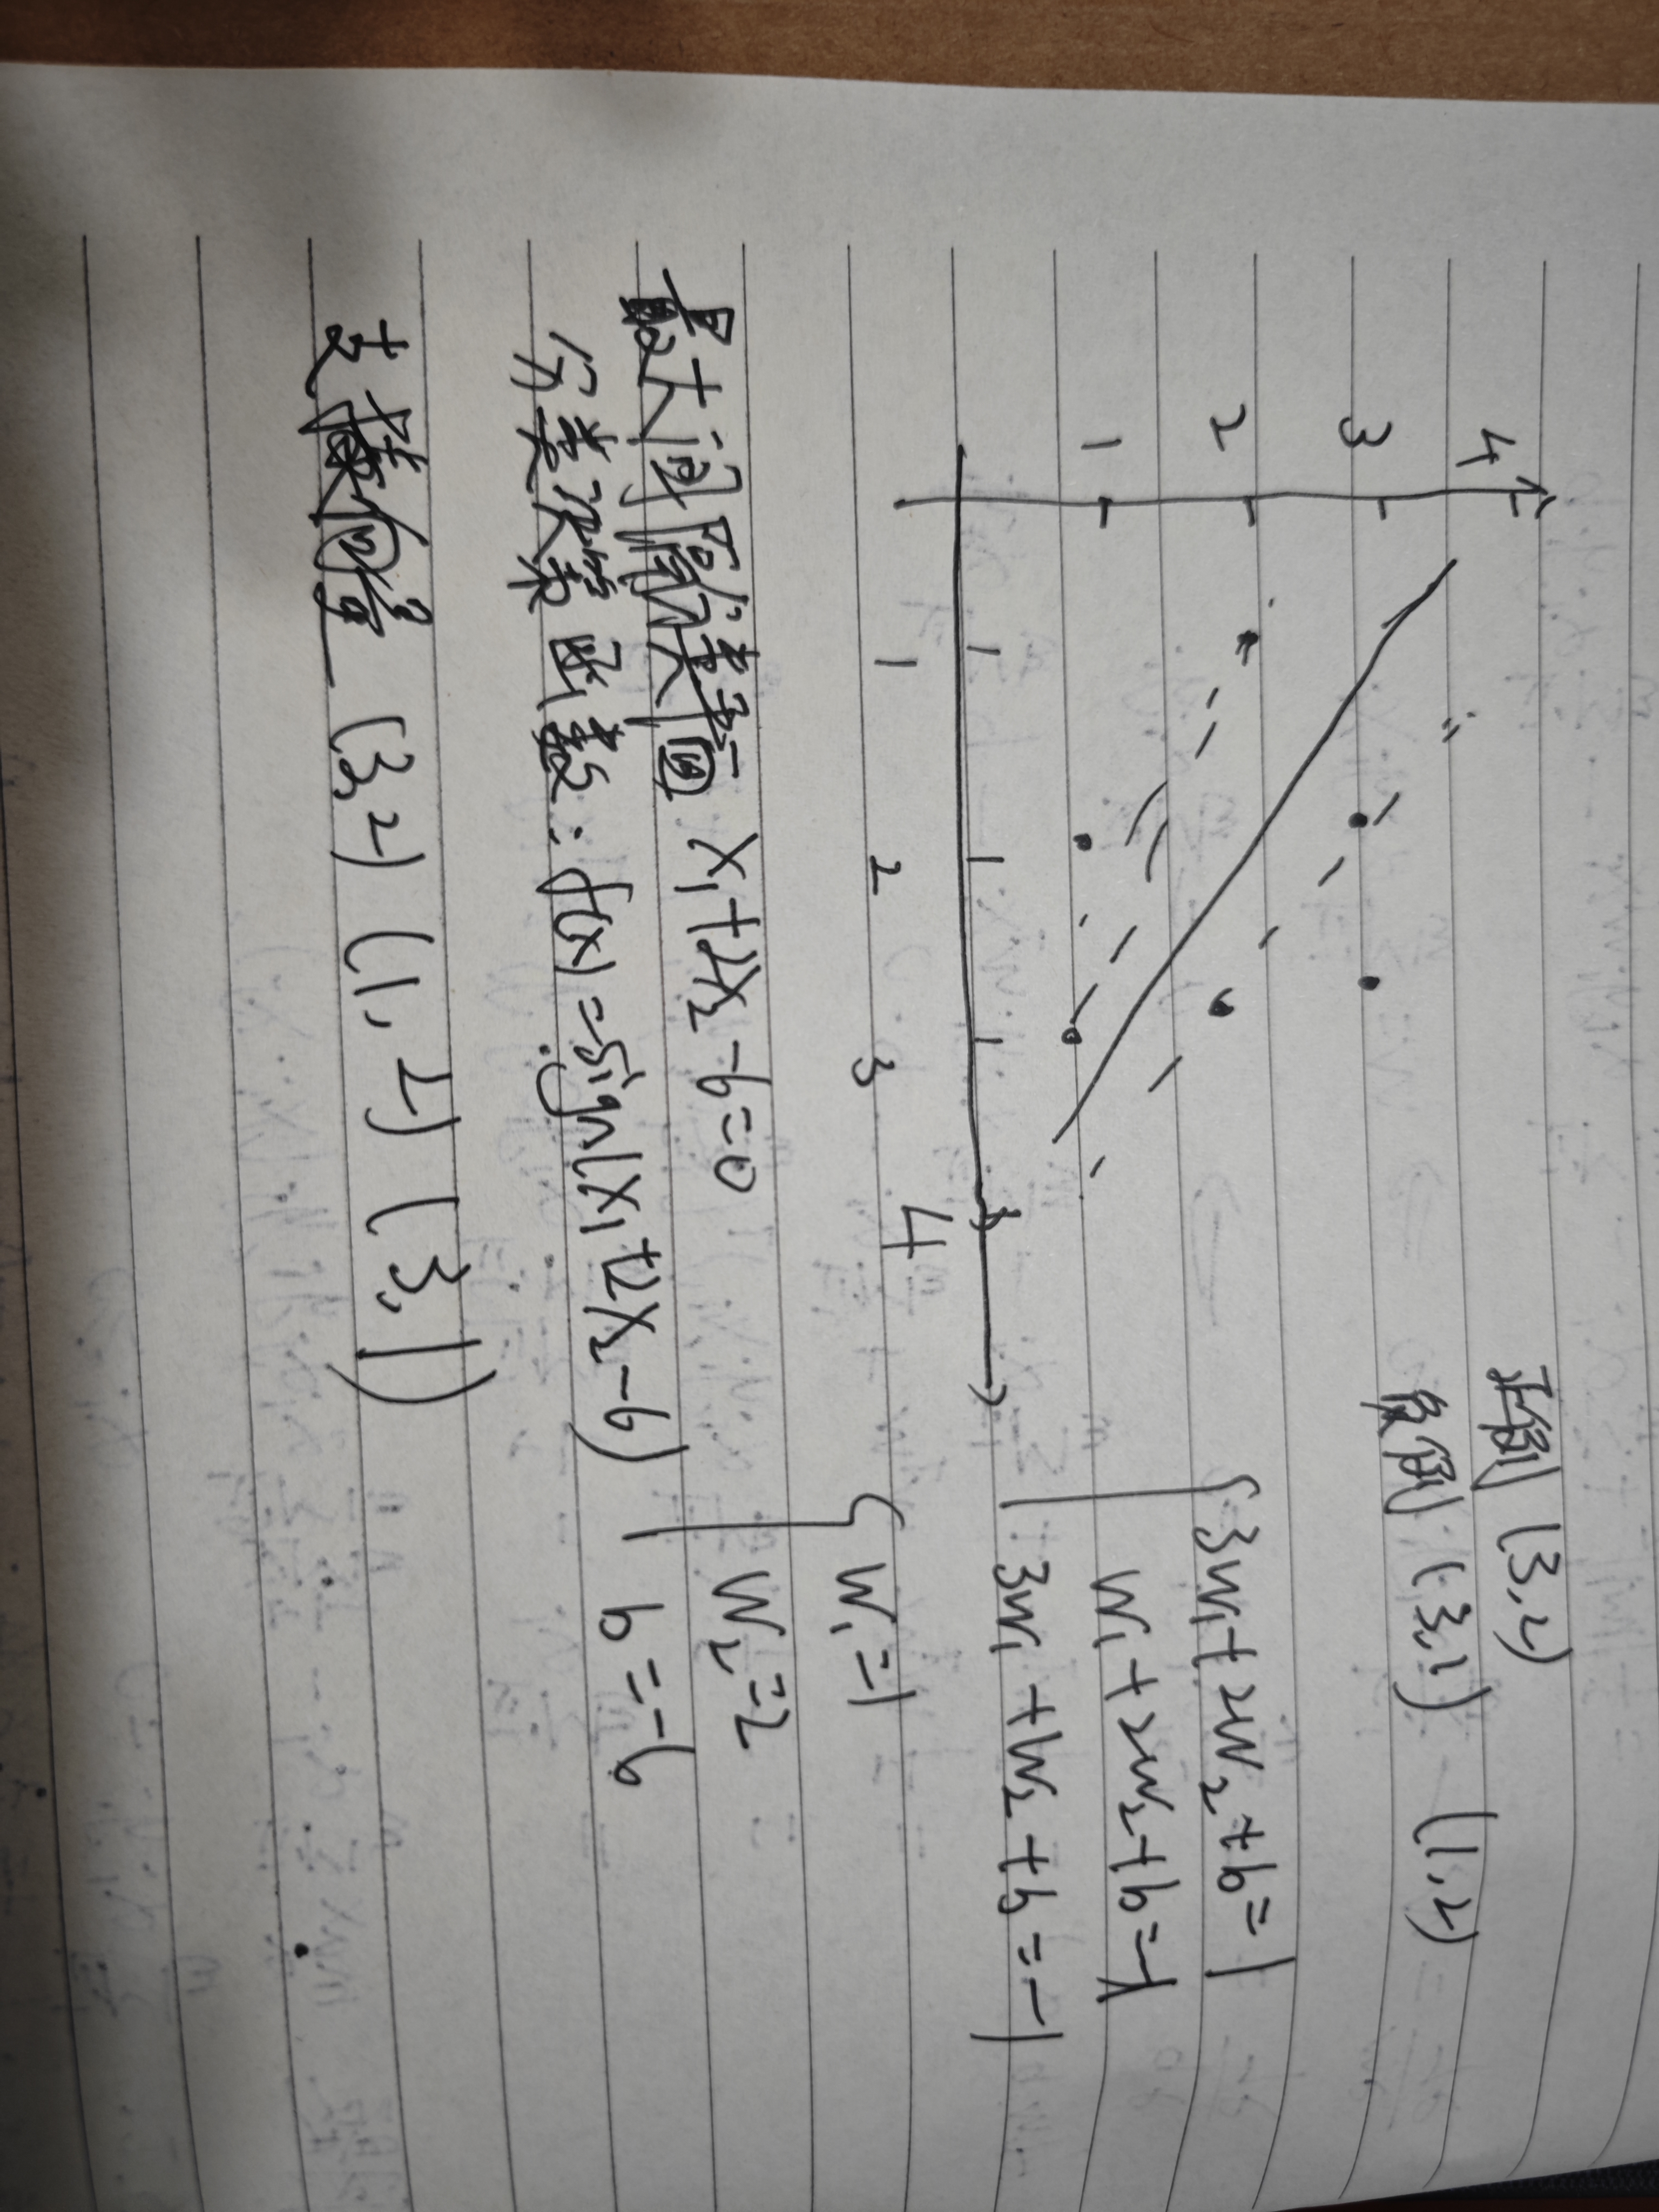 正例 (3,2)
负例 (3,1) (1,2)
4
3
2
1
1 2 3 4
3w₁+2w₂+b=1
w₁+2w₂+b=-1
3w₁+w₂+b=-1
w₁=1
w₂=2
b=-6
最大间隔分类面 x₁+2x₂-6=0
分类决策函数：f(x)=sign(x₁+2x₂-6)
支撑向量 (3,2) (1,2) (3,1)